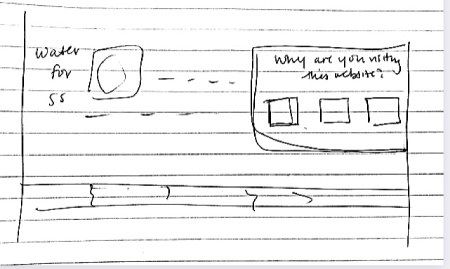 water
for
ss
Why are you visiting
this website?